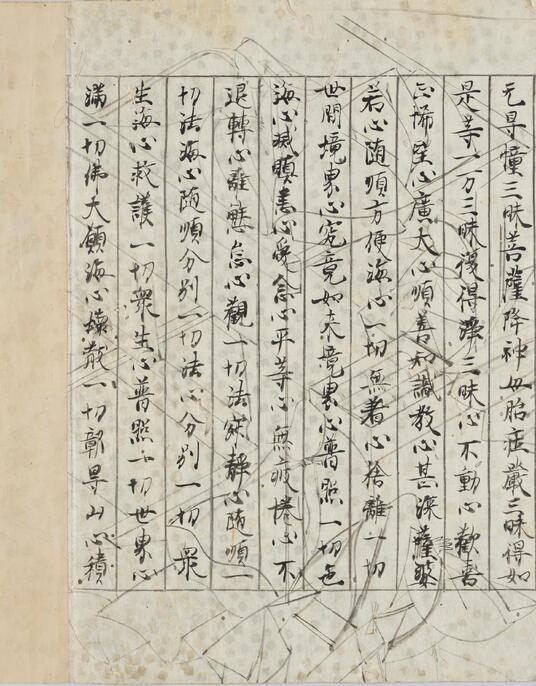 无㝵憧三昧菩薩降神母胎莊嚴三昧得如
是等一万三昧復得深三昧心不動心歡喜
心悕望心廣大心順善知識教心甚深薩婆
若心随順方便海心一切無著心捨離一切
世間境界心究竟如来境界心普照一切色
海心滅瞋恚心愛念心平等心無疲惓心不
退轉心離懈怠心觀一切法寂静心随順一
切法海心随順分别一切法心分别一切衆
生海心救護一切衆生心普照一切世界心
滿一切佛大願海心壞散一切鄣㝵山心積